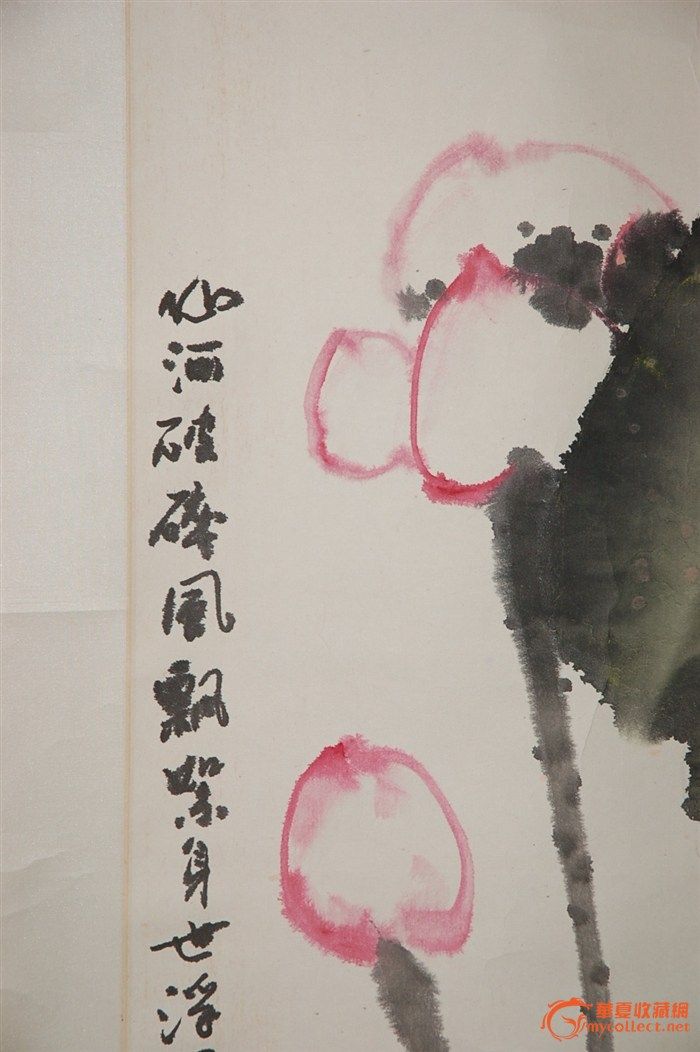 山河破碎風飄絮身世浮
華夏收藏網
mycollect.net